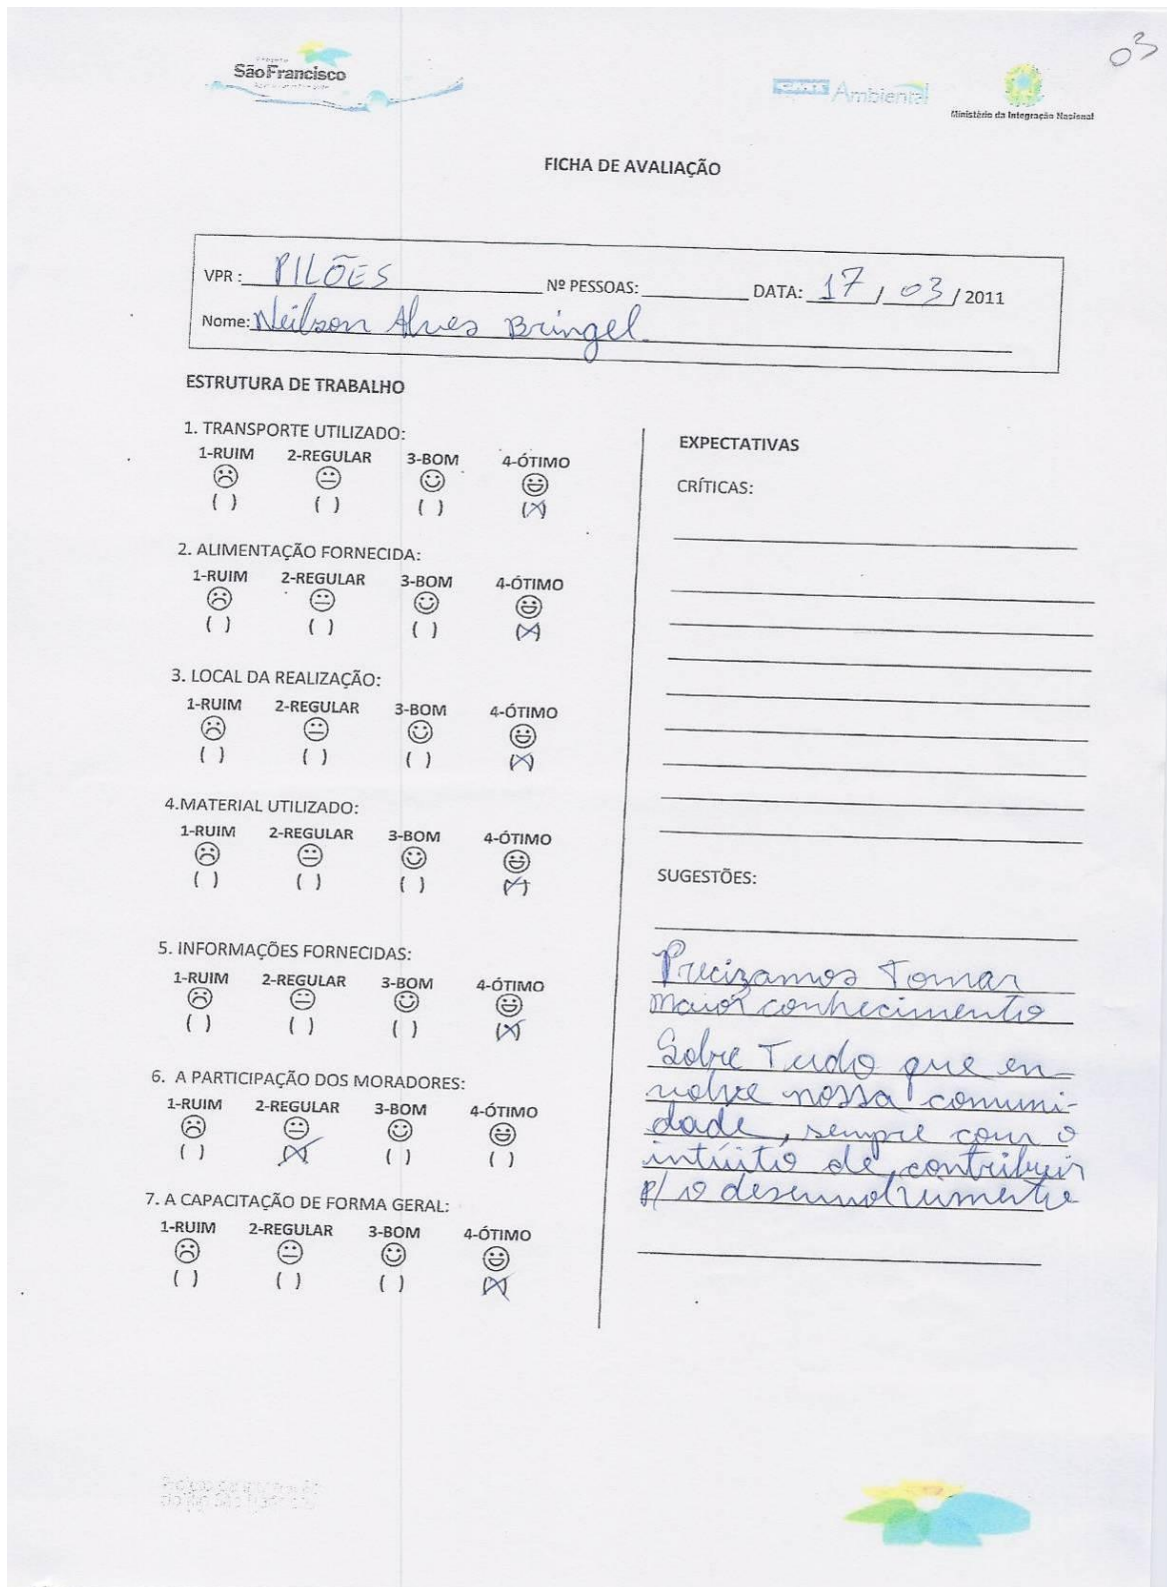 03
São Francisco
Ambiental
Ministério da Integração Nacional
FICHA DE AVALIAÇÃO
VPR : PILÕES Nº PESSOAS: DATA: 17 / 03 / 2011
Nome: Neilson Alves Bringel
ESTRUTURA DE TRABALHO
1. TRANSPORTE UTILIZADO:
1-RUIM 2-REGULAR 3-BOM 4-ÓTIMO
( ) ( ) ( ) (X)
2. ALIMENTAÇÃO FORNECIDA:
1-RUIM 2-REGULAR 3-BOM 4-ÓTIMO
( ) ( ) ( ) (X)
3. LOCAL DA REALIZAÇÃO:
1-RUIM 2-REGULAR 3-BOM 4-ÓTIMO
( ) ( ) ( ) (X)
4.MATERIAL UTILIZADO:
1-RUIM 2-REGULAR 3-BOM 4-ÓTIMO
( ) ( ) ( ) (X)
5. INFORMAÇÕES FORNECIDAS:
1-RUIM 2-REGULAR 3-BOM 4-ÓTIMO
( ) ( ) ( ) (X)
6. A PARTICIPAÇÃO DOS MORADORES:
1-RUIM 2-REGULAR 3-BOM 4-ÓTIMO
( ) (X) ( ) ( )
7. A CAPACITAÇÃO DE FORMA GERAL:
1-RUIM 2-REGULAR 3-BOM 4-ÓTIMO
( ) ( ) ( ) (X)
EXPECTATIVAS
CRÍTICAS:
SUGESTÕES:
Precizamos Tomar
maior conhecimento
Sobre Tudo que en-
volve nossa comuni-
dade, sempre com o
intúito de contribuir
p/ o desenvolvimento